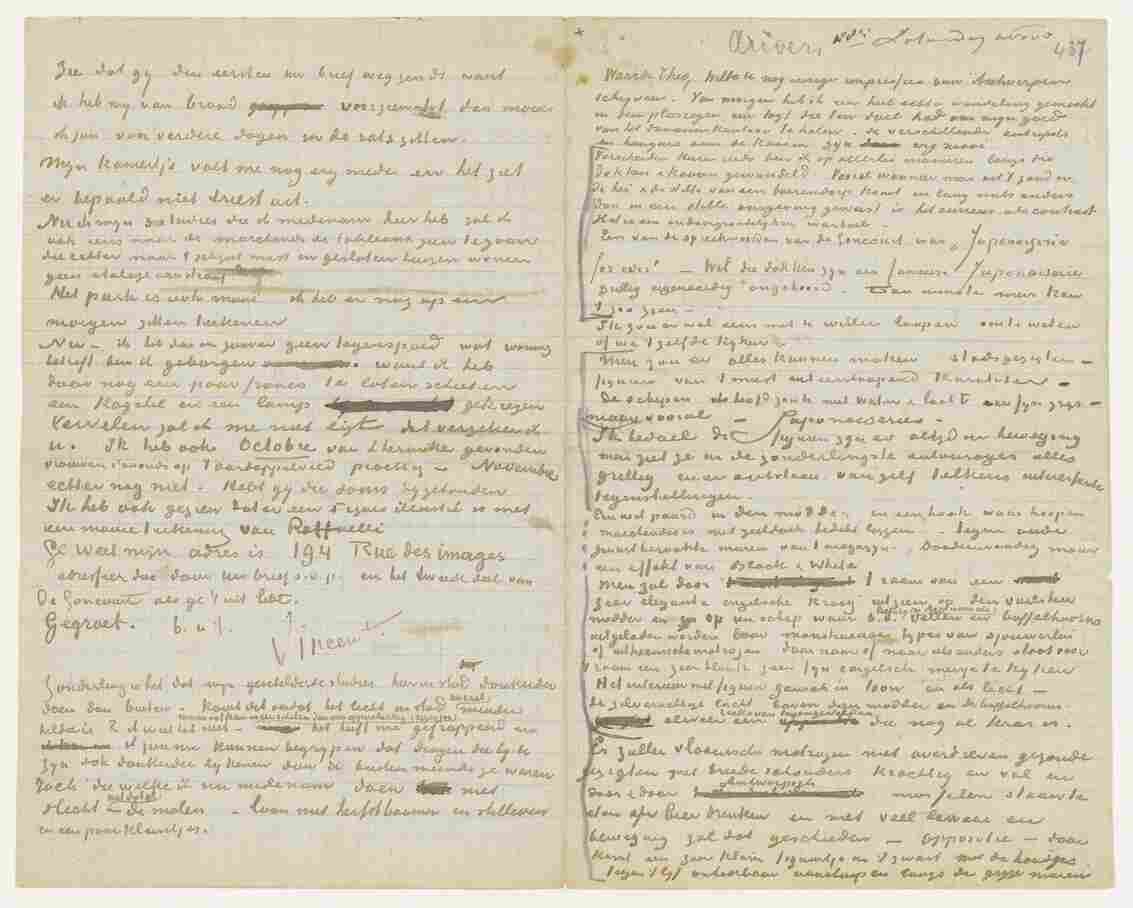 Zie dat gij den eersten uw brief wegzendt want
ik heb mij van brood voorzien tot dan maar
ik zou van verdere dagen in de rats zitten.
Mijn kamertje valt me nog erg mede en het ziet
er bepaald niet triest uit.
Nu ik mijn 3 studies die ik medenam hier heb zal ik
ook eens naar de marchands de tableaux zien te gaan
die echter naar 't schijnt meest in gesloten huizen wonen
geen etalage aan straat
Het park is ook mooi ik heb er nog op een
morgen zitten teekenen
Nu – ik heb dus in zoover geen tegenspoed wat woning
betreft ben ik geborgen want ik heb
door nog een paar francs te laten schieten
een kagchel en een lamp gekregen
Vervelen zal ik me niet ligt dat verzeker ik
U. Ik heb ook Octobre van Lhermitte gevonden
vrouwen s'avonds op 't aardappelveld prachtig – Novembre
echter nog niet. Hebt gij die soms bijgehouden
Ik heb ook gezien dat er een Figaro illustré is met
een mooie teekening van Raffaelli
Ge weet mijn adres is 194 Rue des images
adresseer dus daar uw brief s.v.p. en het tweede deel van
De Goncourt als ge 't uit hebt.
Gegroet. b. à t.
Vincent.
Zonderling is het dat mijn geschilderde studies hier in stad donkerder
doen dan buiten. Komt dit omdat het licht in stad overal minder
helder is? ik weet het niet – het heeft me gefrappeerd en
ik zou me kunnen begrijpen dat dingen die bij U
zijn ook donkerder lijken dan ik buiten meende ze waren
Toch die welke ik nu medenam doen niet
slecht de molen – laan met herfstboomen en stilleven
en een paar kleintjes.
Anvers, Zaturdag avond 437
Waarde Theo, Wilde U nog eenige impressies van Antwerpen
schrijven. Van morgen heb ik een heel echte wandeling gemaakt
in den plasregen een togt die ten doel had om mijn goed
van het douanenkantoor te halen. de verschillende entrepots
en hangars aan de kaaien zijn erg mooi
Verscheiden keeren reeds ben ik op allerlei manieren langs die
dokken & kaaien gewandeld. Vooral wanneer men uit 't zand en
de hei & de stilte van een boerendorp komt en lang niets anders
dan in een stille omgeving geweest is is het curieus als contrast.
Het is een ondoorgrondelijken warboel.
Een van de spreekwoorden van de Goncourt was „Japonaiserie
for ever". – Wel die dokken zijn een fameuse Japonaiserie
grillig eigenaardig ongehoord. – Dan minste men kan
't zoo zien –
Ik zou er wel eens met U willen loopen om te weten
of we 't zelfde kijken
Men zou er alles kunnen maken stadsgezigten –
figuren van 't meest uiteenloopend karakter –
de schepen als hoofdzaak met water & lucht een fijn grijs –
maar vooral – Japonaiseries.
Ik bedoel de figuren zijn er altijd in beweging
men ziet ze in de zonderlingste entourages alles
grillig en er ontstaan van zelf telkens interessante
tegenstellingen.
Een wit paard in den modder, in een hoek waar hoopen
marchandises met zeildoek bedekt liggen – tegen oude
zwart berookte muren van 't magazijn. Doodeenvoudig maar
een effekt van Black & White
Men zal door 't raam van een
zeer elegante engelsche kroeg uitzien op den vuilsten
modder en op een schip waar b.v. vellen en buffelhorens
uitgeladen worden door monsterachtige types van sjouwerlui
of uitheemsche matrozen daarnaar of naar iets anders staat voor
't raam een zeer blank zeer fijn engelsch meisje te kijken
Het interieur met figuur geheel in toon en als licht –
de zilverachtige lucht boven dien modder en de buffelhorens
alweer een die nog al kras is.
Er zullen vlaamsche matrozen met overdreven gezonde
gezigten met breede schouders krachtig en vol en
door & door Antwerpsch mosselen staan te
eten of bier drinken en met veel lawaai en
beweging zal dat geschieden – oppositie – daar
komt een zeer klein figuurtje in 't zwart met de handjes
tegen 't lijf onhoorbaar aansluipen langs de grijze muren